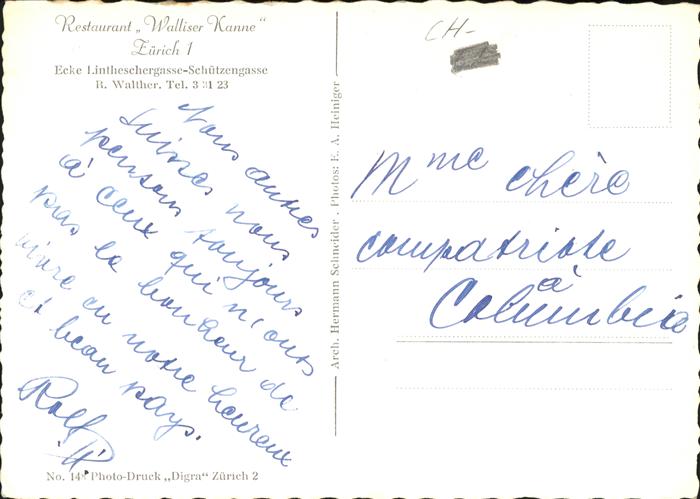 Restaurant „Walliser Kanne"
Zürich 1
Ecke Lintheschergasse-Schützengasse
B. Walther. Tel. 3 31 23
Nous autres
Suisses nous
pensons toujours
à ceux qui n'ont
pas le bonheur de
vivre en notre heureux
et beau pays.
Rolf
No. 148 Photo-Druck „Digra" Zürich 2
Arch. Hermann Schneider . Photos: E. A. Heiniger
CH-
Mme chère
compatriote
à
Columbia